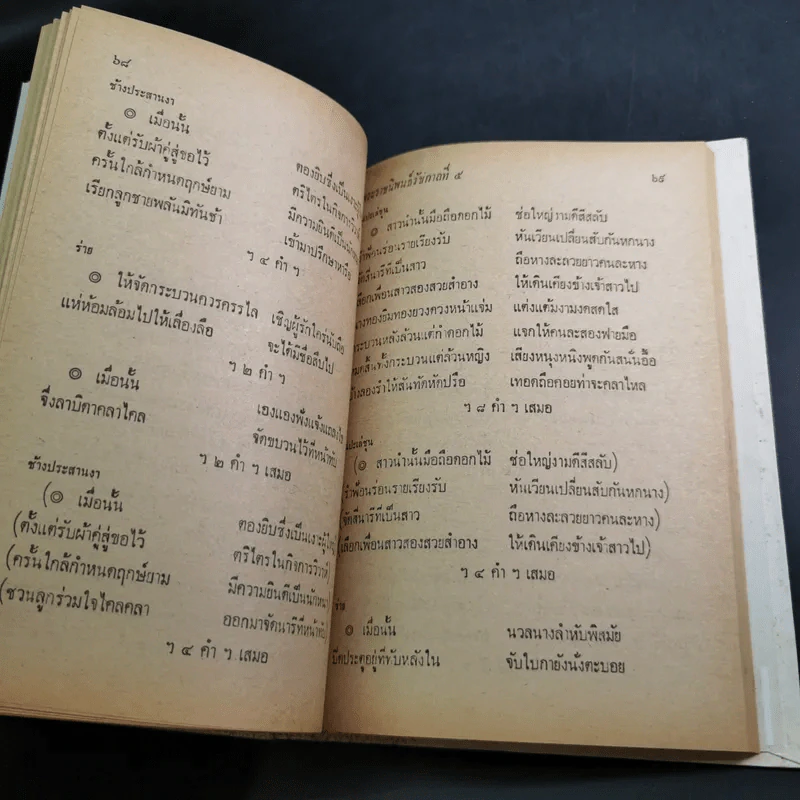 ๖๘
ช้างประสานงา
๏ เมื่อนั้น ตองยิบซึ่งเป็นเงาะ
ตั้งแต่รับผ้าคู่สู่ขอไว้ ตริไตรในกิจการวิวาห์
ครั้นใกล้กำหนดฤกษ์ยาม มีความยินดีเป็น
เรียกลูกชายพลันมิทันช้า เข้ามาปรึกษาหารือ
ฯ ๔ คำ ฯ
ร่าย
๏ ให้จัดกระบวนควรครรไล เชิญผู้รักใคร่นับถือ
แห่ห้อมล้อมไปให้เลื่องลือ จะได้มีชื่อสืบไป
ฯ ๒ คำ ฯ
๏ เมื่อนั้น เองแองฟังแจ้งแถลงไข
จึ่งลาบิดาคลาไคล จัดขบวนไว้ที่หน้าทับ
ฯ ๒ คำ ฯ เสมอ
ช้างประสานงา
(๏ เมื่อนั้น ตองยิบซึ่งเป็นเงาะผู้ใหญ่)
(ตั้งแต่รับผ้าคู่สู่ขอไว้ ตริไตรในกิจการวิวาห์)
(ครั้นใกล้กำหนดฤกษ์ยาม มีความยินดีเป็นนักหนา)
(ชวนลูกร่วมใจไคลคลา ออกมาจัดนารีที่หน้าทับ)
ฯ ๔ คำ ฯ เสมอ
พระราชนิพนธ์รัชกาลที่ ๕ ๖๙
๏ สาวนำนั้นมือถือดอกไม้ ช่อใหญ่งามดีสีสลับ
รำฟ้อนร่อนรายเรียงรับ หันเวียนเปลี่ยนสับกันหกนาง
จัดสีนารีที่เป็นสาว ถือหางละลวยยาวคนละหาง
เลือกเพื่อนสาวสองสวยสำอาง ให้เดินเคียงข้างเจ้าสาวไป
นางทองยิมทองยวงควงหน้าแจ่ม แต่งแต้มงามงดสดใส
กระบวนหลังล้วนแต่กำดอกไม้ แจกให้คนละสองฟายมือ
หมดสิ้นทั้งกระบวนแต่ล้วนหญิง เสียงหนุงหนิงพูดกันสนั่นอื้อ
ร้องรำให้สันทัดหัดปรือ เทอดถือคอยท่าจะคลาไหล
ฯ ๘ คำ ฯ เสมอ
(๏ สาวนำนั้นมือถือดอกไม้ ช่อใหญ่งามดีสีสลับ)
(รำฟ้อนร่อนรายเรียงรับ หันเวียนเปลี่ยนสับกันหกนาง)
(จัดสีนารีที่เป็นสาว ถือหางละลวยยาวคนละหาง)
(เลือกเพื่อนสาวสองสวยสำอาง ให้เดินเคียงข้างเจ้าสาวไป)
ฯ ๔ คำ ฯ เสมอ
ร่าย
๏ เมื่อนั้น นวลนางลำหับพิสมัย
ปิดประตูอยู่ที่ทับหลังใน จับใบกายังนั่งตะบอย